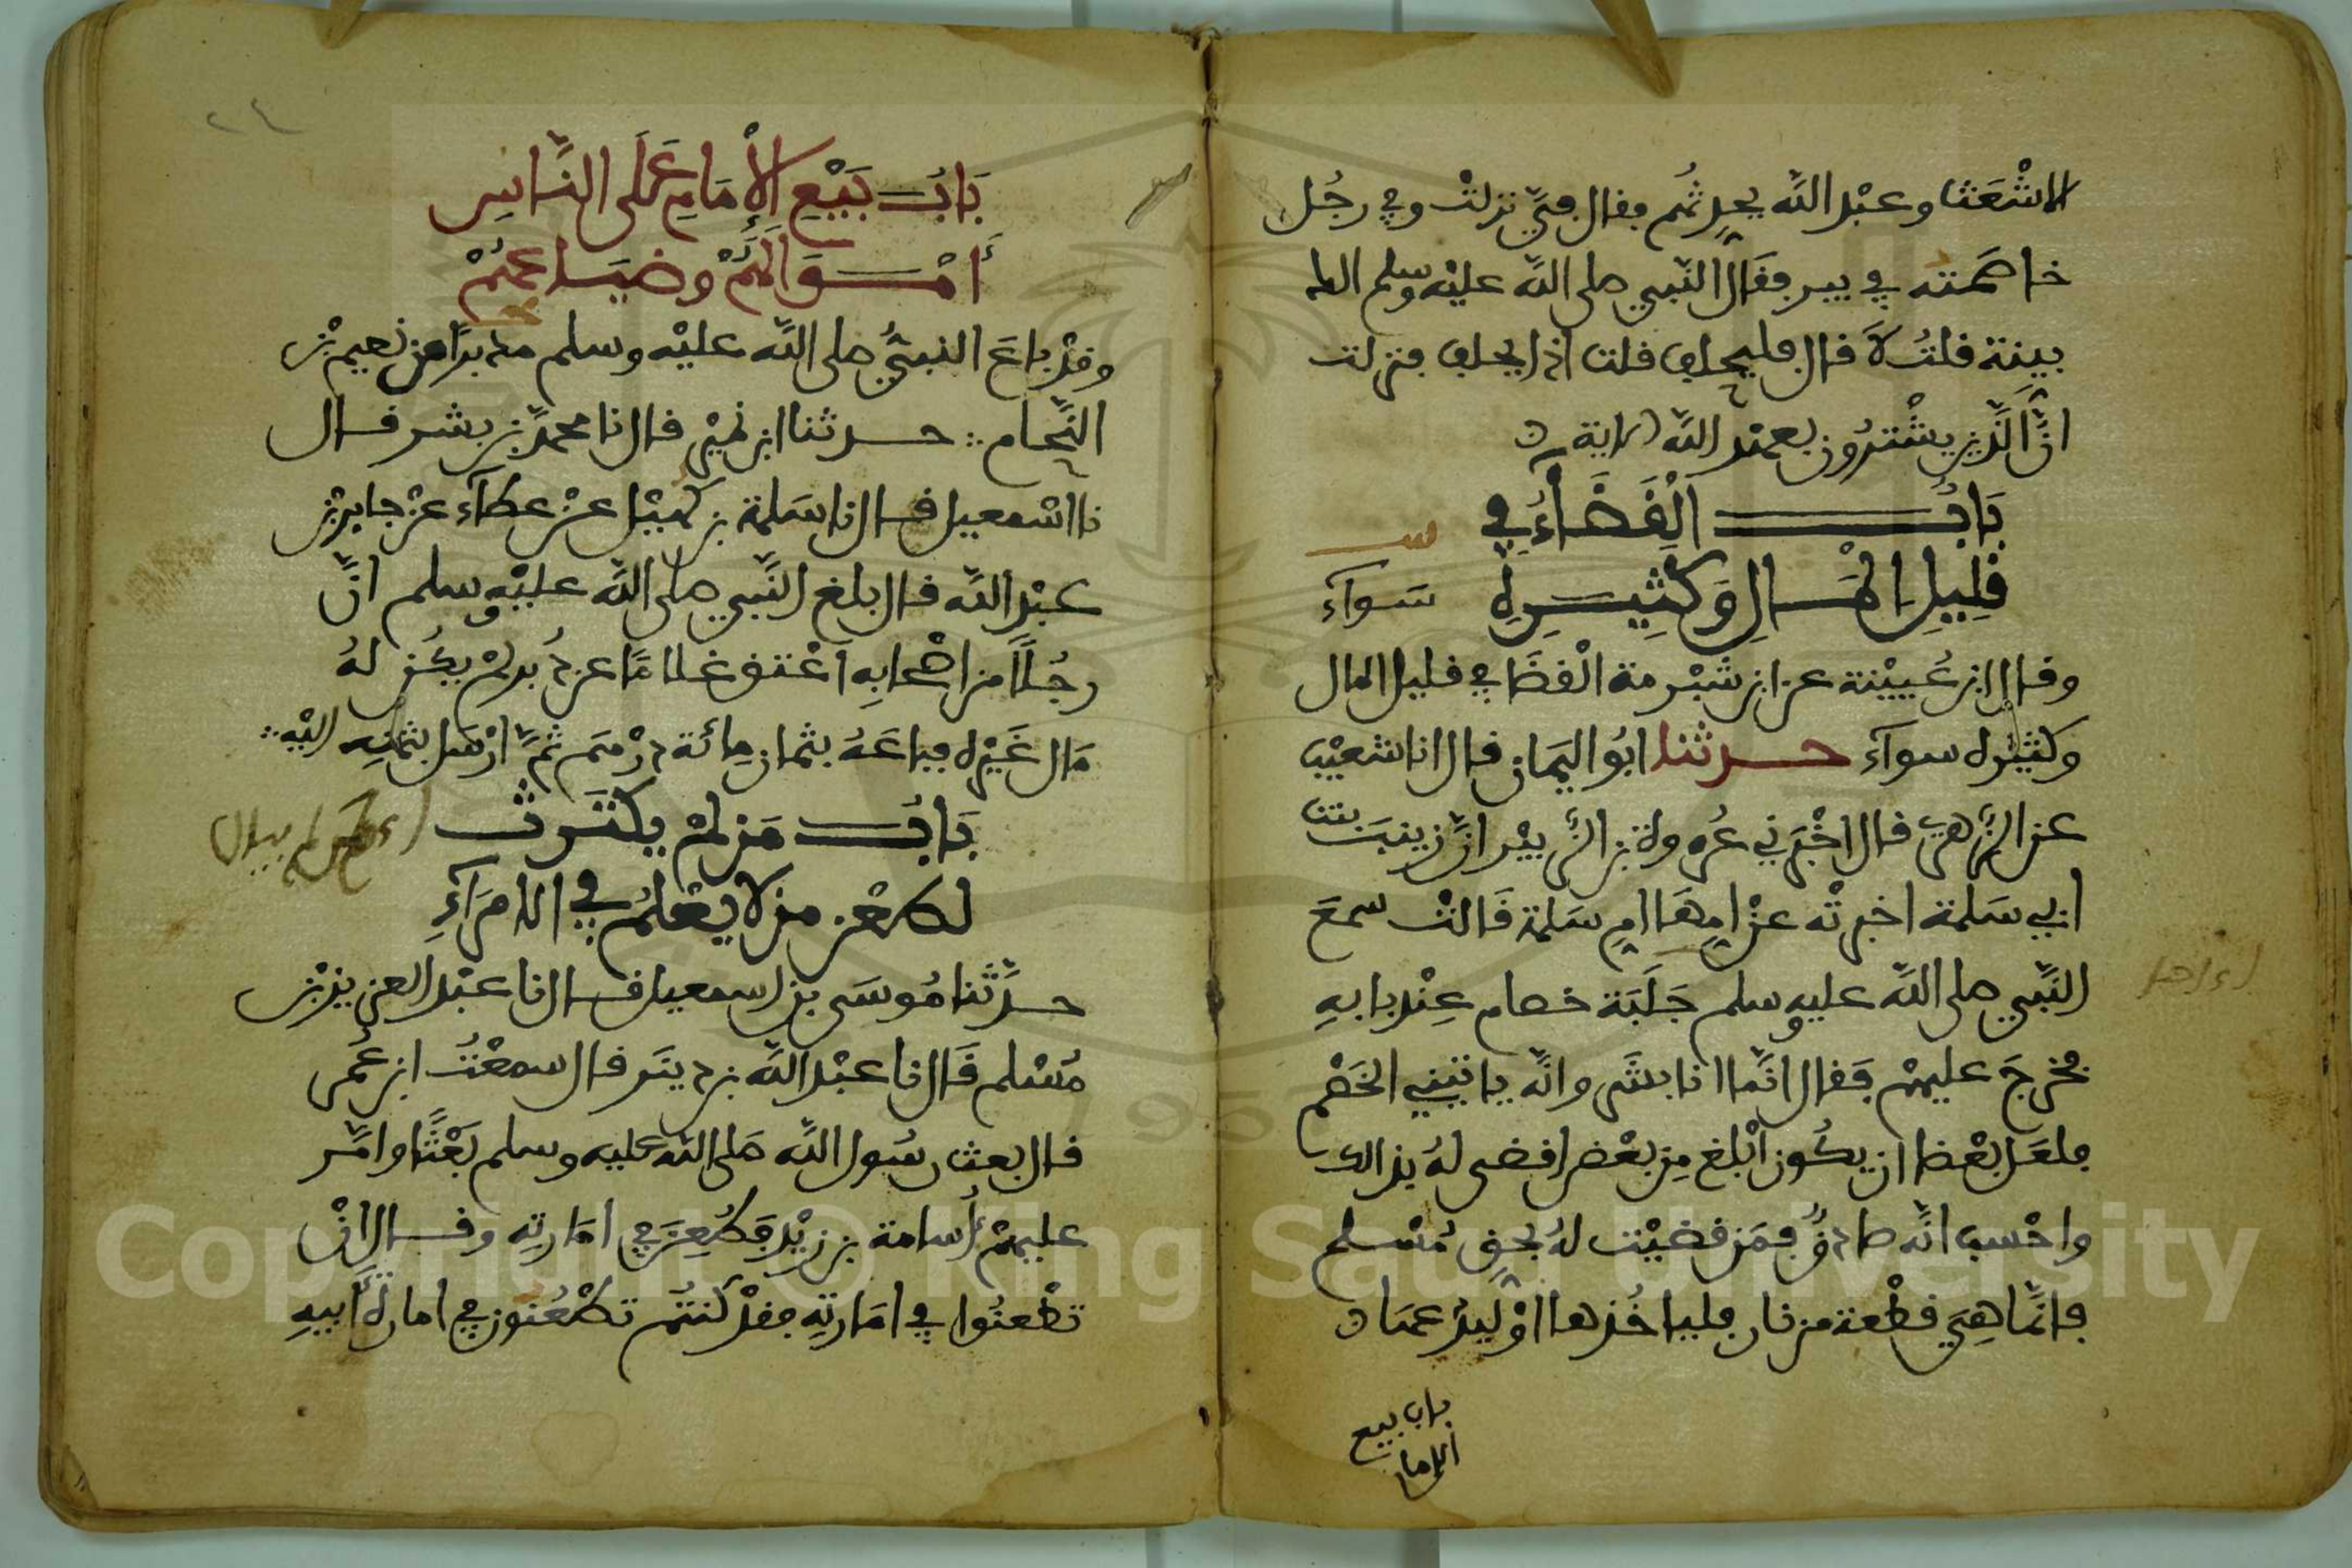 الاشْعَث وعبْد الله يحدثهُم فقال فيّ نزلتْ وفي رجُل
خاصمته في بير فقَال النّبي صلى الله عليْه وسلم الك
بينة قلتُ لَا قال فليحلف قلت اذا يحلف فنزلت
انَّ الَّذين يشْترُون بعهد الله الاية
بَابُ الْقَضَاءِ في
قَلِيلِ الْمَالِ وَكَثِيرِهِ سَوآء
وقال ابن عُيَيْنة عن ابن شبْرمة الْقضَا في قليل المال
وكثيْره سوآء حدثنا ابُو اليمَان قال انا شعيْب
عن الزهري قال اخْبَرني عُروة بن الزّبيْر انَّ زينبَ بنت
ابي سَلمة اخبرتْه عنْ امِهَا امِ سَلمة قَالتْ سمعَ
النَّبي صلى الله عليه وسلم جَلَبَة خصام عِنْد بابهِ
فخرجَ عليهمْ فقال انَّما انا بشَر وانّه ياتيني الخَصْم
فلعَل بعْضا ان يكُون ابْلغ مِن بعْض اقضى لهُ بذالك
واحْسب انَّه صادقٌ فمَن قضيْت لهُ بحق مُسْلم
فانَّما هِيَ قطْعة من نار فلياخُذها اوْ ليدعها
باب بيع
الامام
٢٤
بَابُ بَيْعِ الْإِمَامِ عَلَى النَّاسِ
أَمْوَالَهُمْ وضيَاعهُمْ
وقدْ باعَ النبيُّ صلى الله عليْه وسلم مدبرًا من نعيم بْن
النَّحام حدثنا ابن نميْر قال نا محمدُ بن بشر قال
نا اسْمعيل قال نا سَلمة بن كهيْل عنْ عطآء عنْ جابر بْن
عبْد الله قال بلغ النَّبي صلى الله عليْه وسلم انَّ
رجُلًا من اصْحابهِ اعْتق غلامًا عن دُبر لمْ يكُن لهُ
مَال غَيْره فباعَهُ بثمان مِائة درْهَم ثمَّ ارْسَل بثمَنِه اليْه
بَابُ مَن لمْ يكْتَرث
لطعْن من لا يعْلمُ في الامرَآءِ
حدَّثنا مُوسَى بن اسمعيل قال نا عبْد العزيز بْن
مُسْلم قَال نا عبْد الله بن دينَر قال سمعْتُ ابن عُمر
قال بعث رسُول الله صَلى الله عليه وسلم بَعْثًا وامَّر
عليهمْ أُسامة بن زيْد فَطُعِنَ في امَارتِه وقال انْ
تطْعنُوا في امَارتِه فقدْ كنتُم تطْعُنون في امارة أَبيهِ